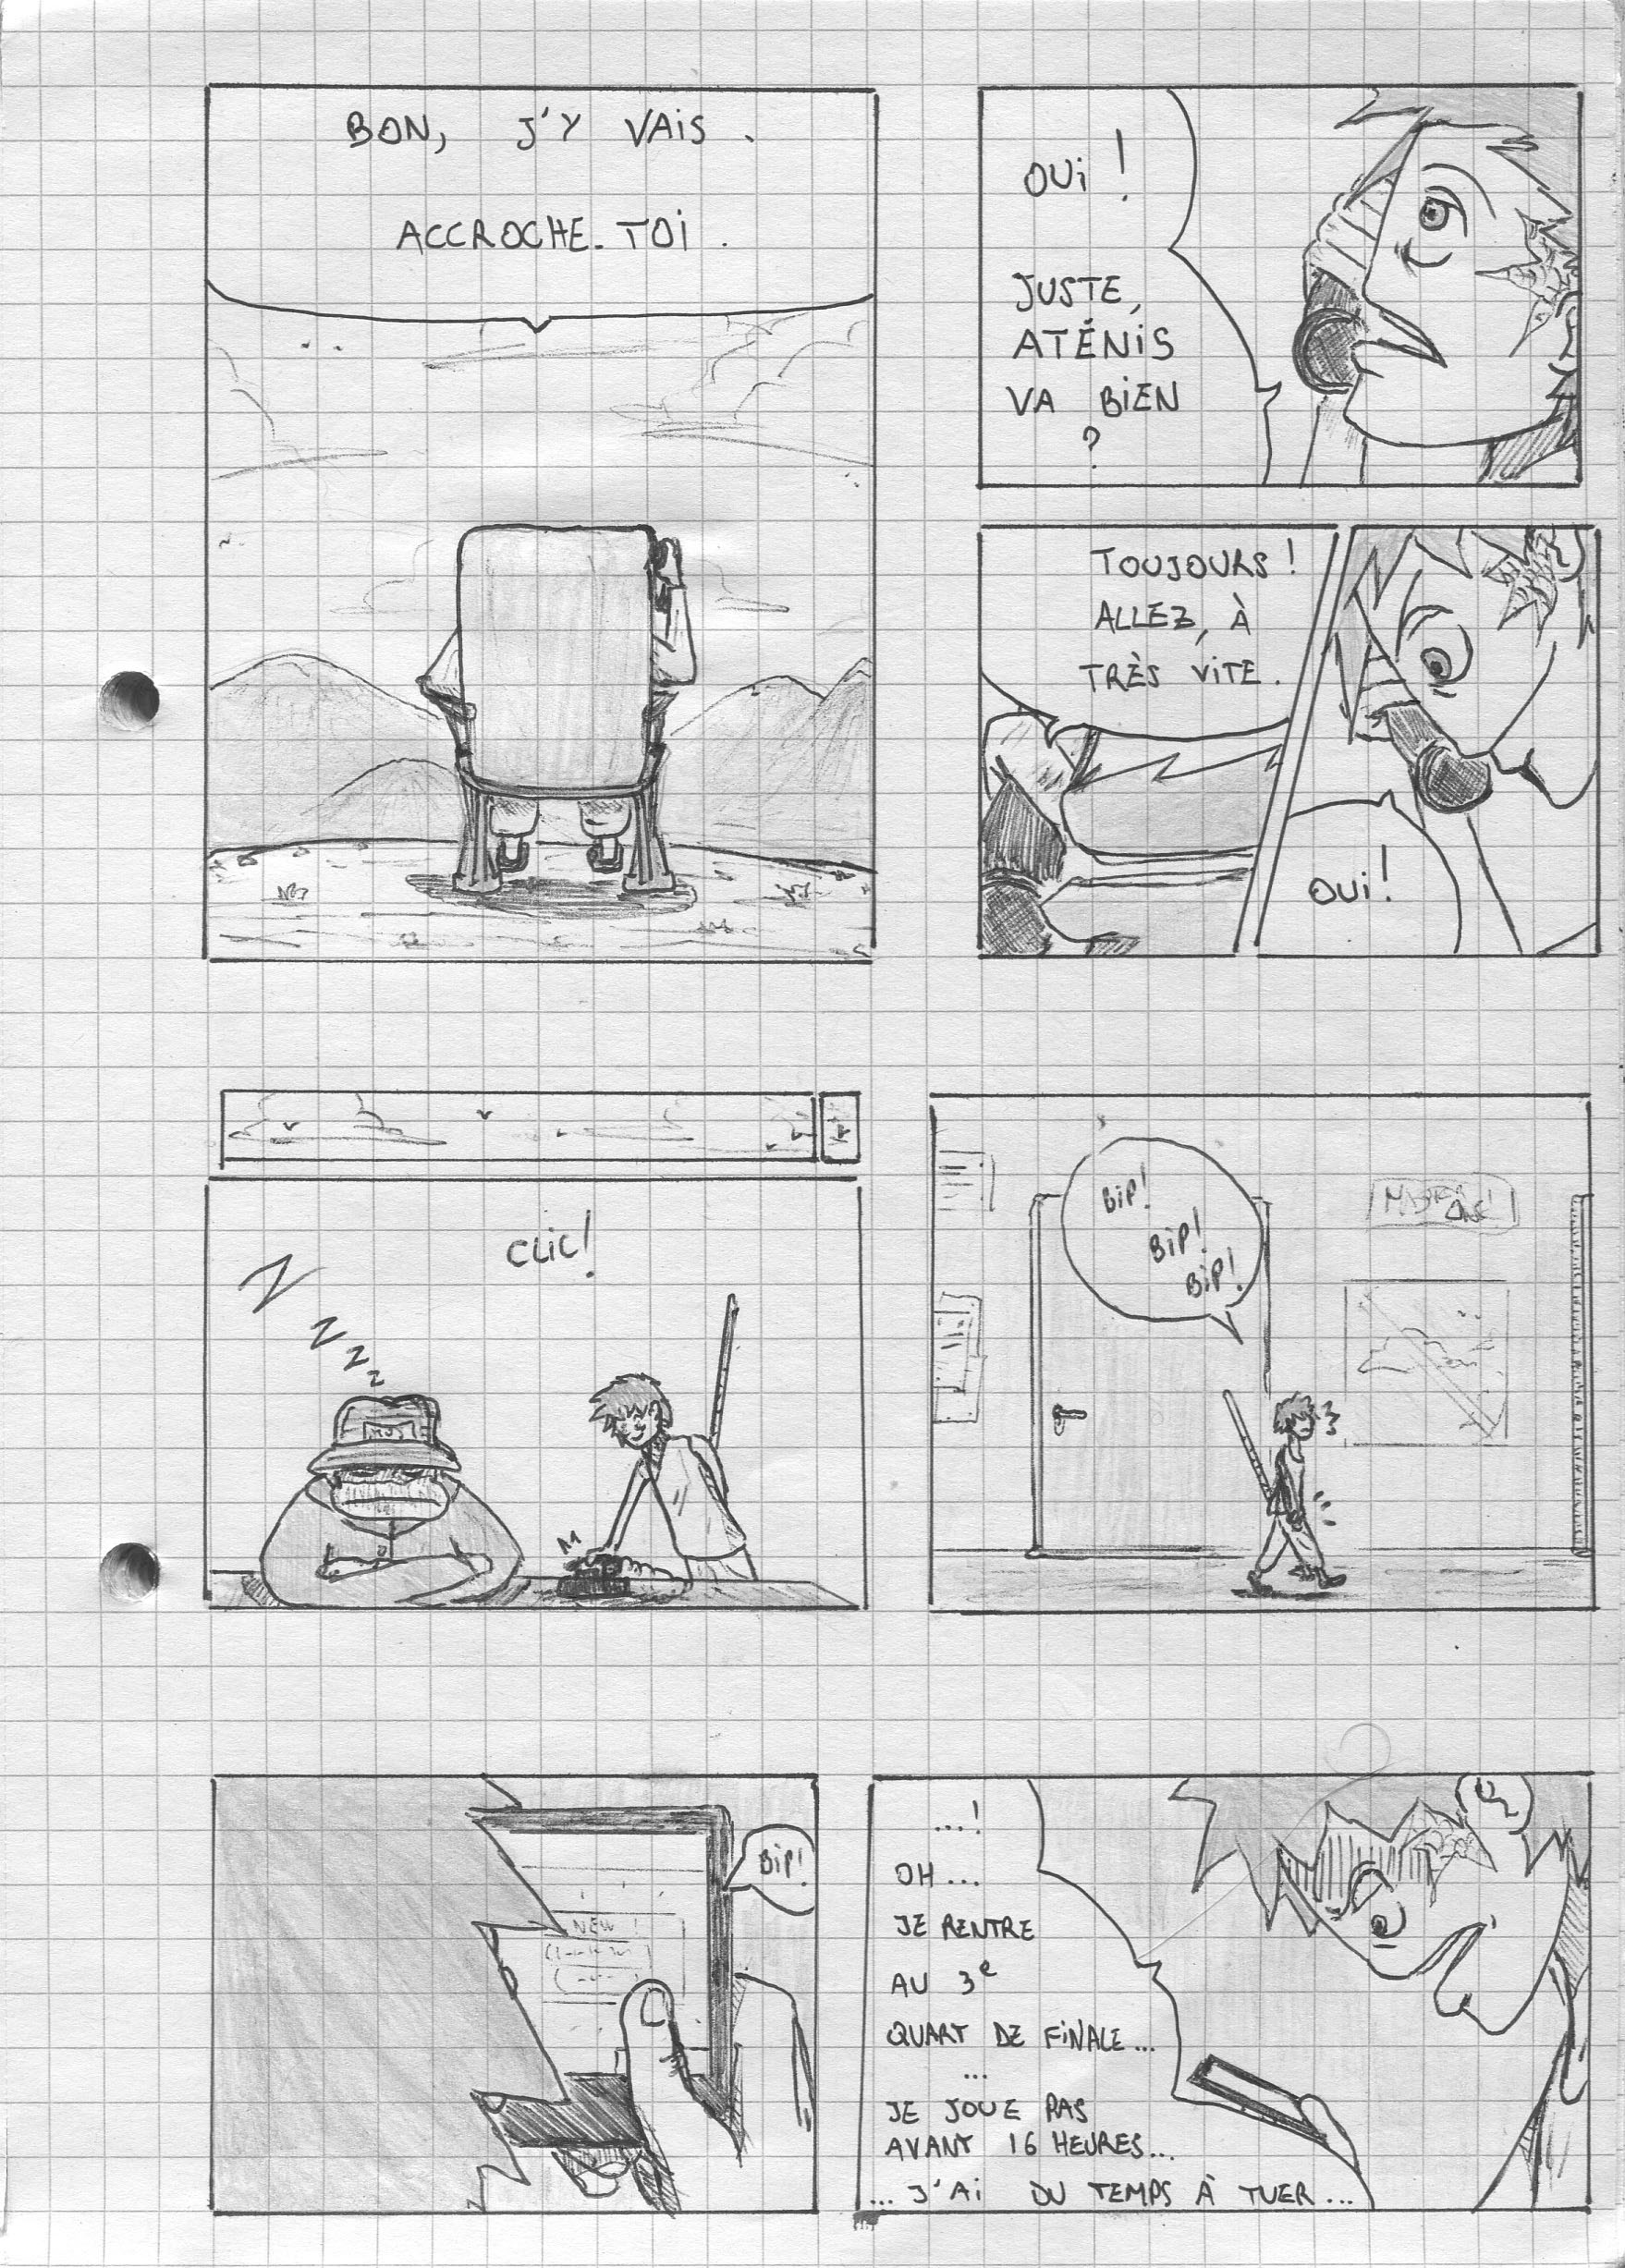 BON, J'Y VAIS.
ACCROCHE-TOI.
OUI !
JUSTE,
ATÉNIS
VA BIEN
?
TOUJOURS !
ALLEZ, À
TRÈS VITE.
OUI !
CLIC !
Z
Z
Z
Z
M
BIP!
BIP!
BIP!
NEW !
BIP!
...!
OH...
JE RENTRE
AU 3e
QUART DE FINALE...
...
JE JOUE PAS
AVANT 16 HEURES...
... J'AI DU TEMPS À TUER...